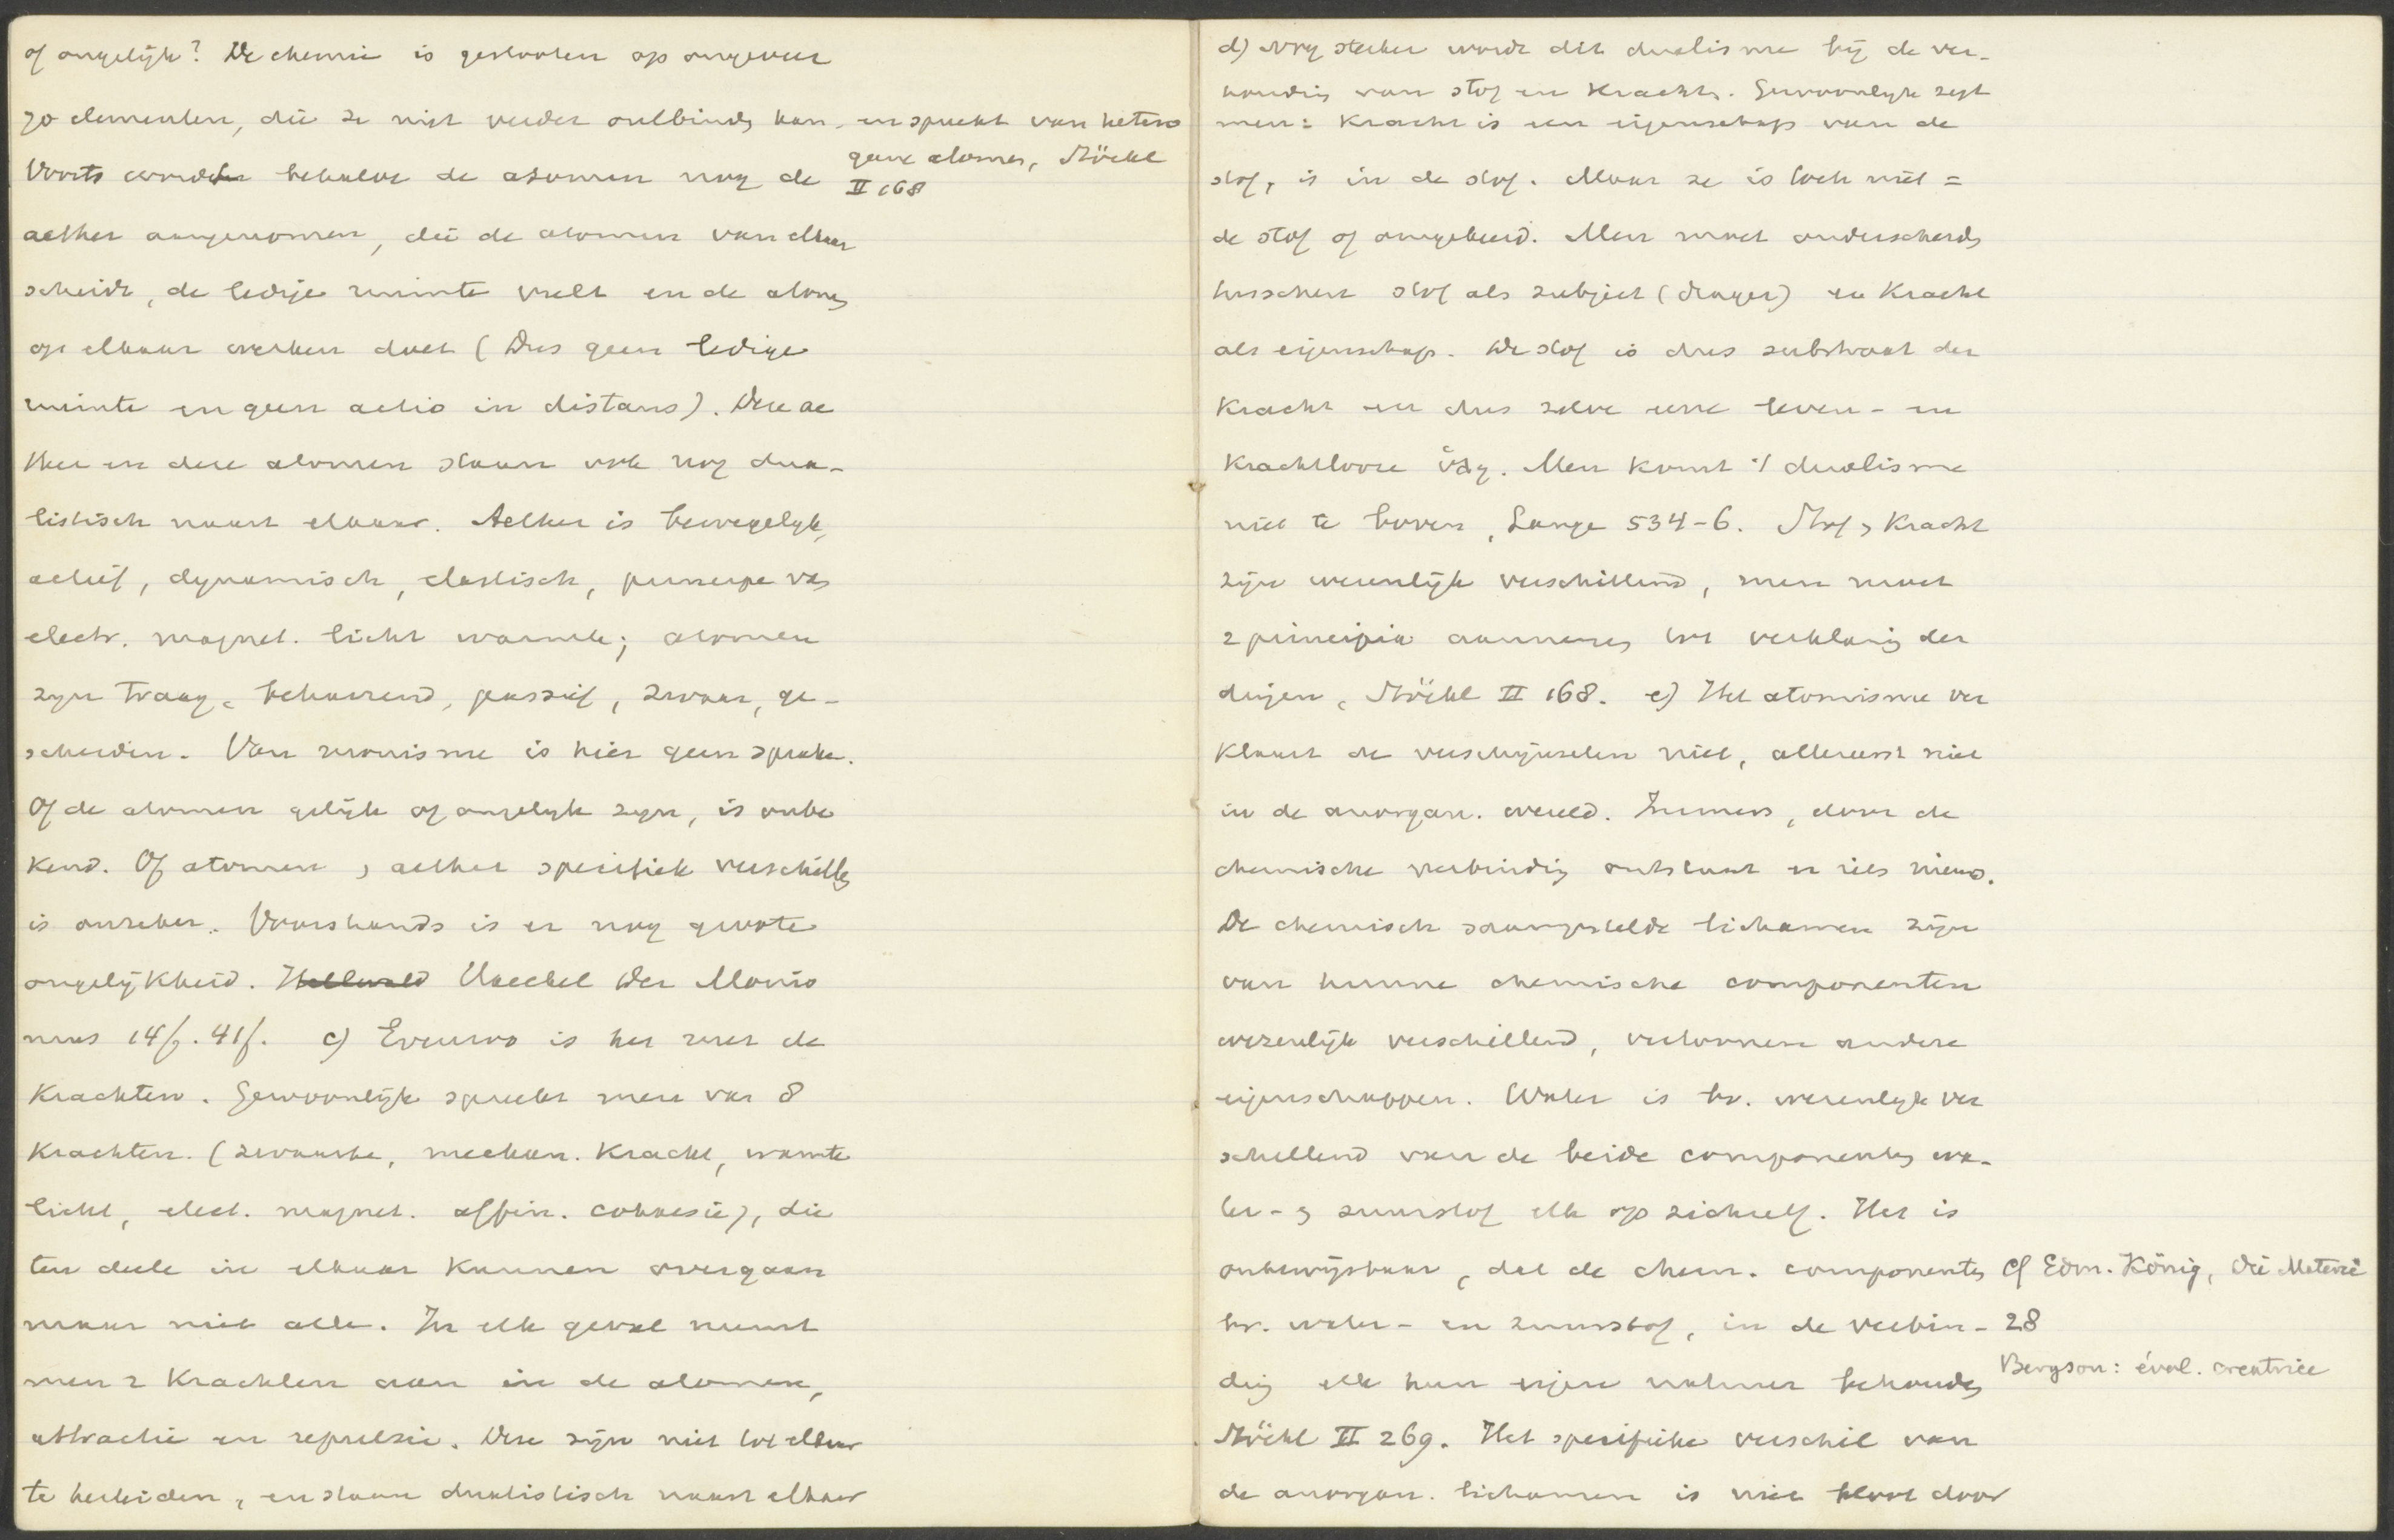 of ongelijk? De chemie is gestooten op ongeveer
70 elementen, die ze niet verder ontbinden kan - en spreekt van hetero
gene atomen, Stöckl
II 168
Voorts worden behalve de atomen nog de
aether aangenomen, die de atomen van elkaar
scheidt, de ledige ruimte vult en de atomen
op elkaar werken doet (Dus geen ledige
ruimte en geen actio in distans). Deze ae
ther en deze atomen staan ook nog dua-
listisch naast elkaar. Aether is bewegelijk,
actief, dynamisch, elastisch, principe van
electr. magnet. licht warmte; atomen
zijn traag, beharrend, passief, zwaar, ge-
scheiden. Van monisme is hier geen sprake.
Of de atomen gelijk of ongelijk zijn, is onbe
kend. Of atomen & aether specifiek verschillen
is onzeker. Voorshands is er nog groote
ongelijkheid. Hellwald Haeckel Der Monis
mus 14f. 41f. c) Evenzoo is het met de
Krachten. Gewoonlijk spreekt men van 8
Krachten. (zwaarte, mechan. Kracht, warmte
licht, elect. magnet. affin. cohaesie), die
ten deele in elkaar kunnen overgaan
maar niet alle. In elk geval neemt
men 2 Krachten aan in de atomen,
attractie en repulsie. Deze zijn niet tot elkaar
te herleiden, en staan dualistisch naast elkaar
d) Nog sterker wordt dit dualisme bij de ver-
houding van stof en Kracht. Gewoonlijk zegt
men: Kracht is een eigenschap van de
stof, is in de stof. Maar ze is toch niet =
de stof of omgekeerd. Men moet onderscheiden
tusschen stof als subject (drager) en Kracht
als eigenschap. De stof is dus substraat der
Kracht en dus zelve eene leven- en
Krachtlooze . Men komt 't dualisme
niet te boven, Lange 534-6. Stof & Kracht
zijn wezenlijk verschillend, men moet
2 principia aannemen tot verklaring der
dingen, Stöckl II 168. e) Het atomisme ver
klaart de verschijnselen niet, allereerst niet
in de anorgan. wereld. Immers, door de
chemische verbinding ontstaat er iets nieuws.
De chemisch saamgestelde lichamen zijn
van hunne chemische componenten
wezenlijk verschillend, vertoonen andere
eigenschappen. Water is bv. wezenlijk ver
schillend van de beide componenten wa-
ter- & zuurstof elk op zichzelf. Het is
onbewijsbaar, dat de chem. componenten
bv. water- en zuurstof, in de verbin-
ding elk hun eigen natuur behouden
Stöckl II 269. Het specifieke verschil van
de anorgan. lichamen is niet bloot door
Cf Edm. König, Die Materie
28
Bergson: évol. creatrice